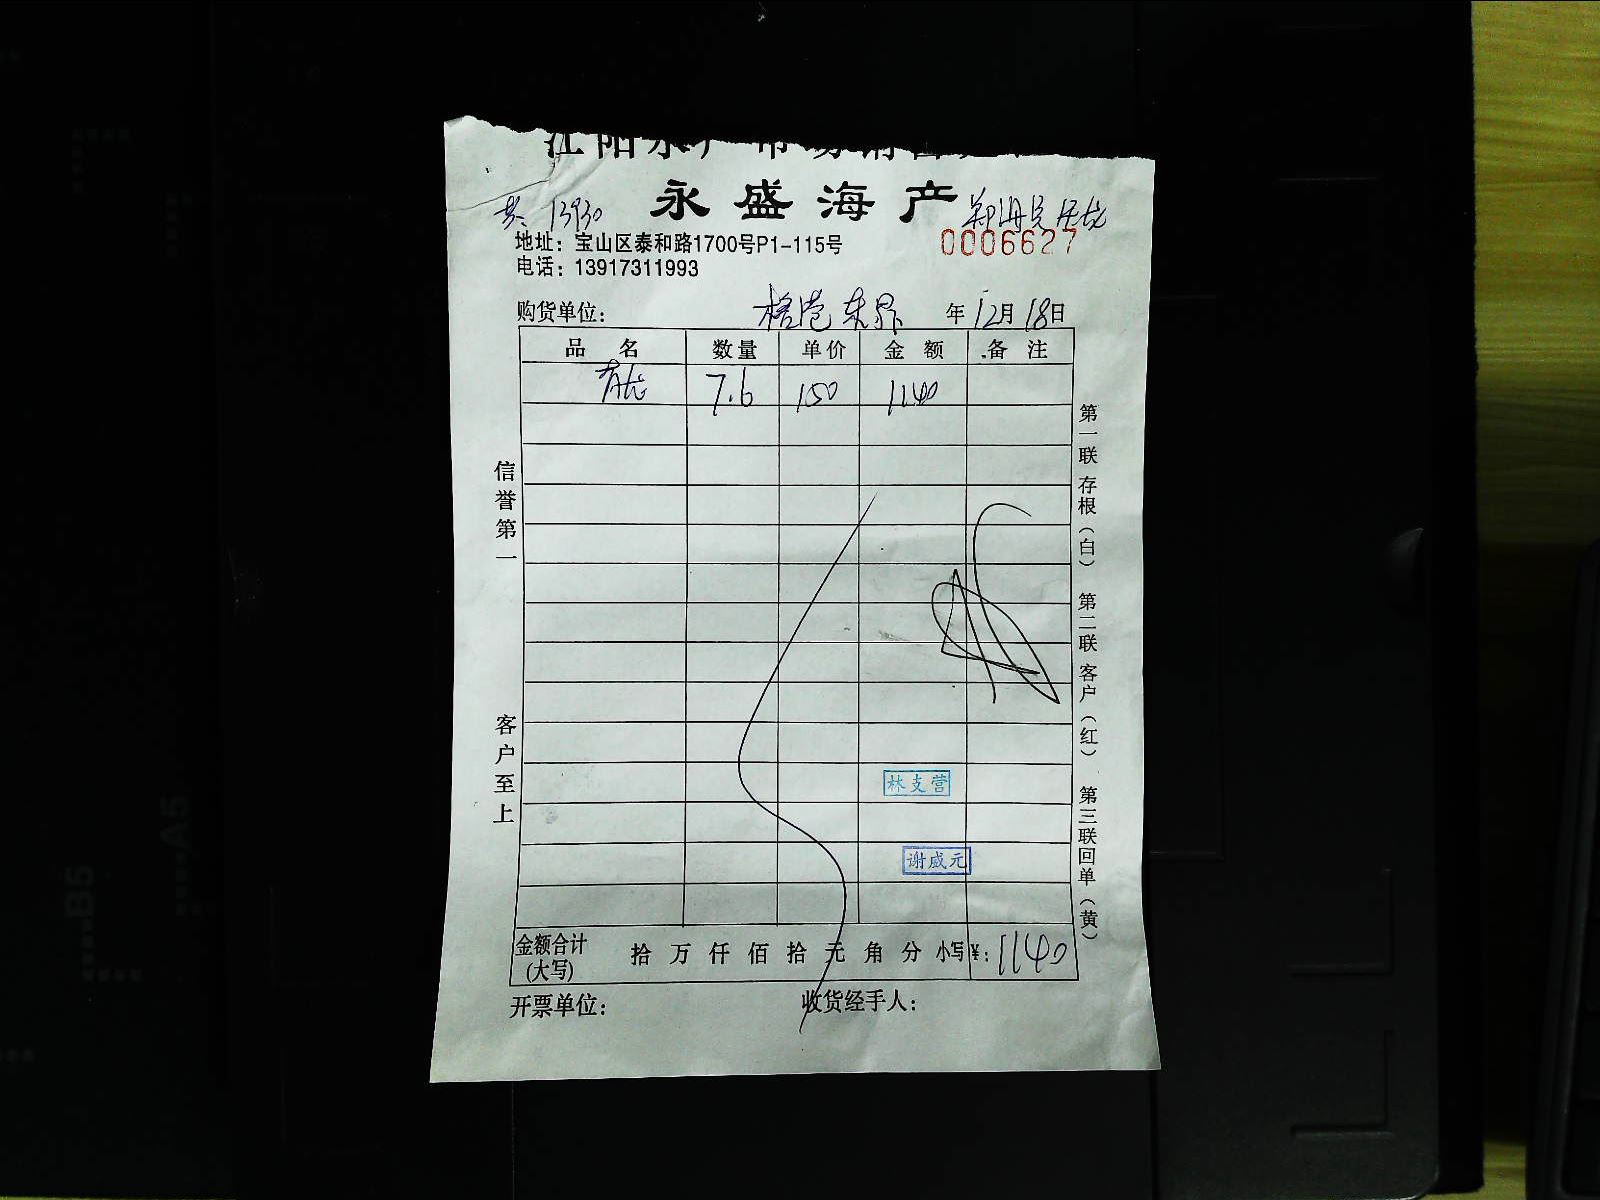 江阳水产市场销售
永盛海产
共: 13930
0006627
地址：宝山区泰和路1700号P1-115号
电话：13917311993
购货单位： 年 12月 18日
品名 数量 单价 金额 备注
7.6 150 1140
信誉第一
客户至上
第一联 存根（白） 第二联 客户（红） 第三联 回单（黄）
林支营
谢威元
金额合计(大写) 拾 万 仟 佰 拾 元 角 分 小写¥：1140
开票单位： 收货经手人：